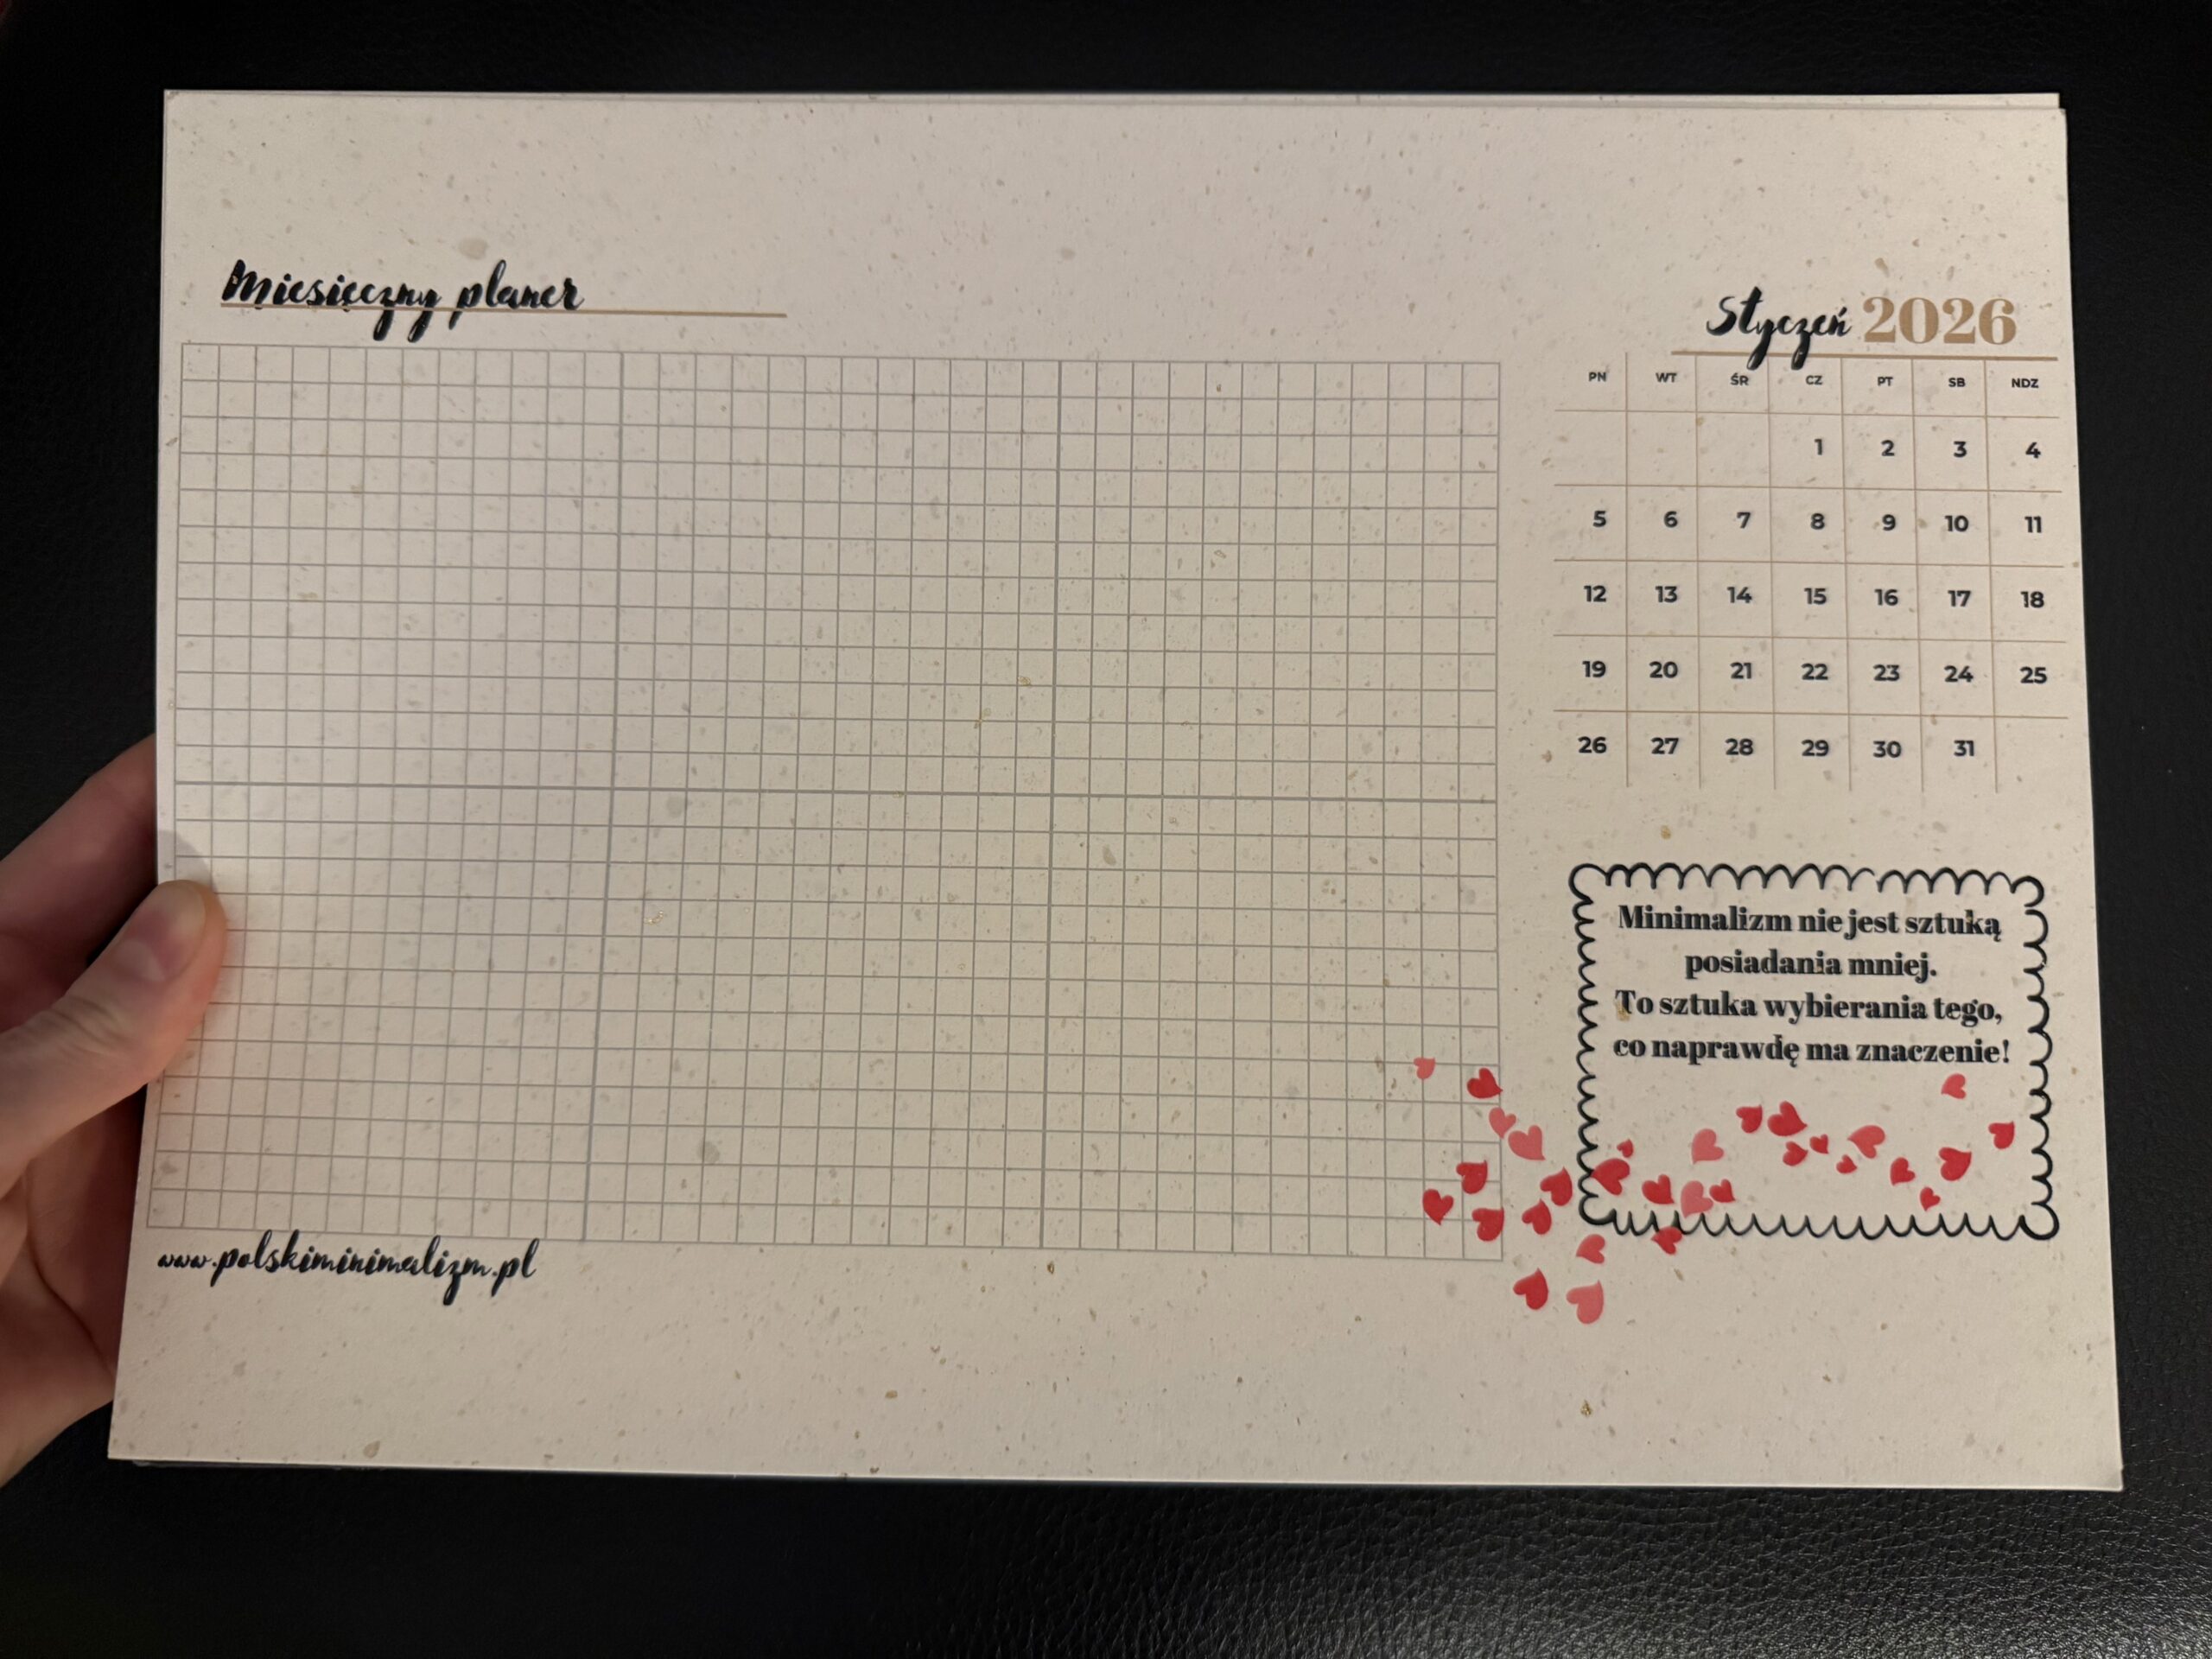 Miesięczny planer
Styczeń 2026
PN WT ŚR CZ PT SB NDZ
1 2 3 4
5 6 7 8 9 10 11
12 13 14 15 16 17 18
19 20 21 22 23 24 25
26 27 28 29 30 31
Minimalizm nie jest sztuką
posiadania mniej.
To sztuka wybierania tego,
co naprawdę ma znaczenie!
www.polskiminimalizm.pl